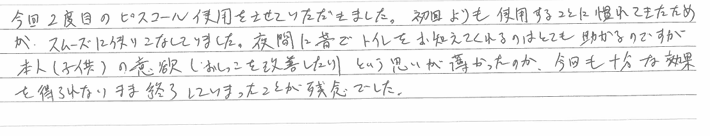 今回2度目のピスコール使用をさせていただきました。初回よりも使用することに慣れてきたため
か、スムーズに使りこなしてました。夜間に音でトイレをお知えてくれるのはとても助かるのですが
本人(子供)の意欲(おしっこを改善したい)という思いが薄かったのか、今回も十分な効果
を得られないまま終了してしまったことが残念でした。